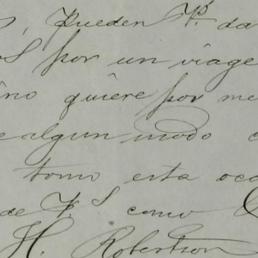 , Pueden Vs da
s por un viage
no quiere por me
e algun modo c
tomo esta oca
de Vs como
H. Robertson